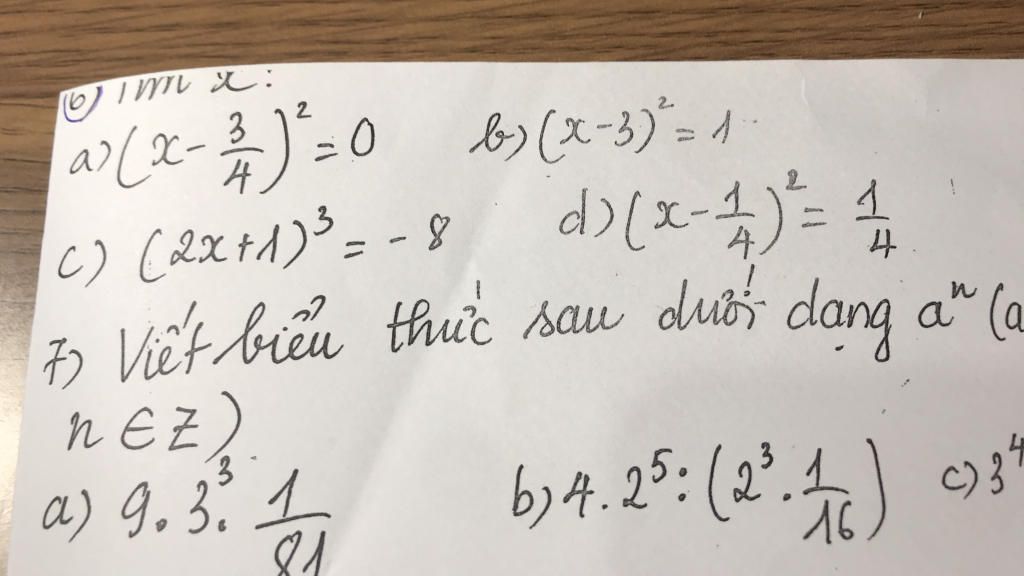 6) Tìm x:
a) (x - 3/4)² = 0 b) (x - 3)² = 1
c) (2x + 1)³ = - 8 d) (x - 1/4)² = 1/4
7) Viết biểu thức sau dưới dạng aⁿ (a
n ∈ Z)
a) 9 . 3³ . 1/81 b) 4 . 2⁵ : (2³ . 1/16) c) 3⁴